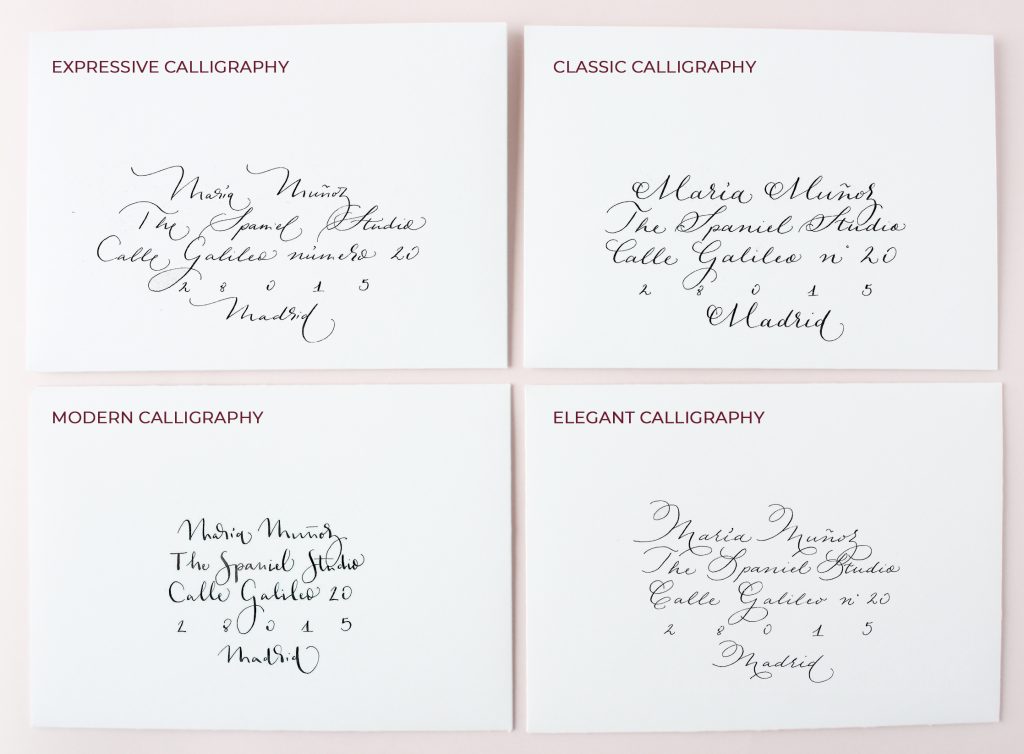 EXPRESSIVE CALLIGRAPHY
María Muñoz
The Spaniel Studio
Calle Galileo número 20
2 8 0 1 5
Madrid
CLASSIC CALLIGRAPHY
María Muñoz
The Spaniel Studio
Calle Galileo nº 20
2 8 0 1 5
Madrid
MODERN CALLIGRAPHY
María Muñoz
The Spaniel Studio
Calle Galileo 20
2 8 0 1 5
Madrid
ELEGANT CALLIGRAPHY
María Muñoz
The Spaniel Studio
Calle Galileo nº 20
2 8 0 1 5
Madrid